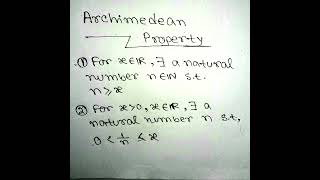 Archimedean
Property
① For x∈ℝ, ∃ a natural
number n∈ℕ s.t.
n≥x
② For x>0, x∈ℝ, ∃ a
natural number n s.t.
0 < 1/n ≤ x